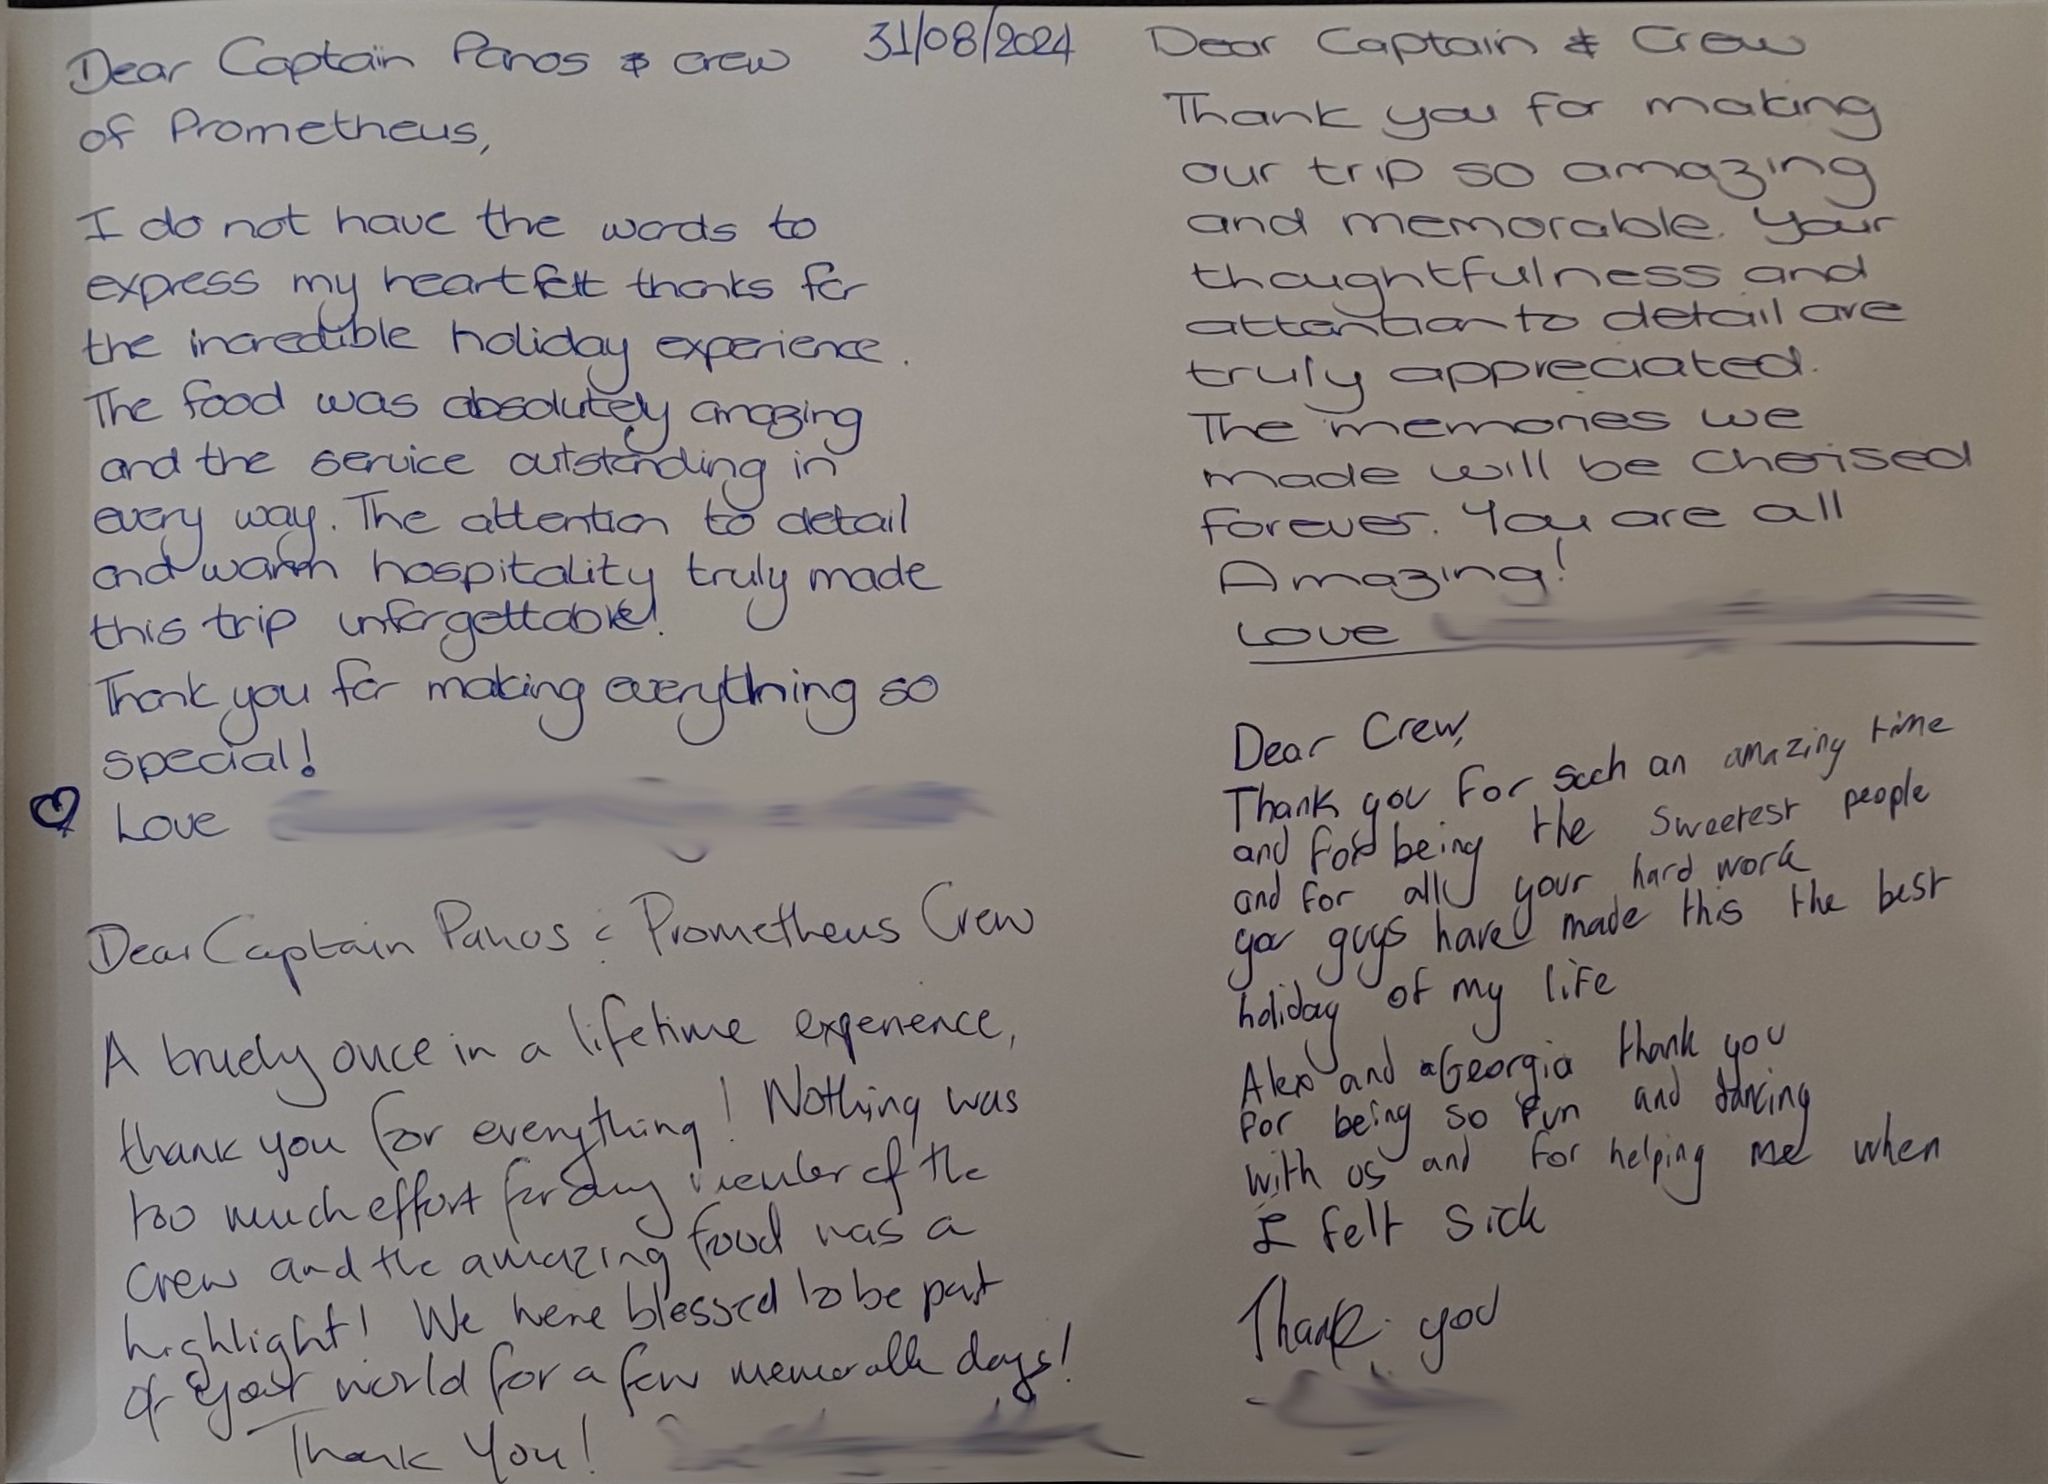 Dear Captain Panos & crew 31/08/2024
of Prometheus,
I do not have the words to
express my heartfelt thanks for
the incredible holiday experience.
The food was absolutely amazing
and the service outstanding in
every way. The attention to detail
and warm hospitality truly made
this trip unforgettable!
Thank you for making everything so
special!
Love
Dear Captain Panos & Prometheus Crew
A truely once in a lifetime experience,
thank you for everything! Nothing was
too much effort for any member of the
crew and the amazing food was a
highlight! We were blessed to be part
of your world for a few memorable days!
Thank You!
Dear Captain & Crew
Thank you for making
our trip so amazing
and memorable. Your
thoughtfulness and
attention to detail are
truly appreciated.
The memories we
made will be cherised
forever. You are all
Amazing!
Love
Dear Crew,
Thank you for such an amazing time
and for being the sweetest people
and for all your hard work
you guys have made this the best
holiday of my life
Alex and Georgia thank you
for being so fun and dancing
with us and for helping me when
I felt sick
Thank you